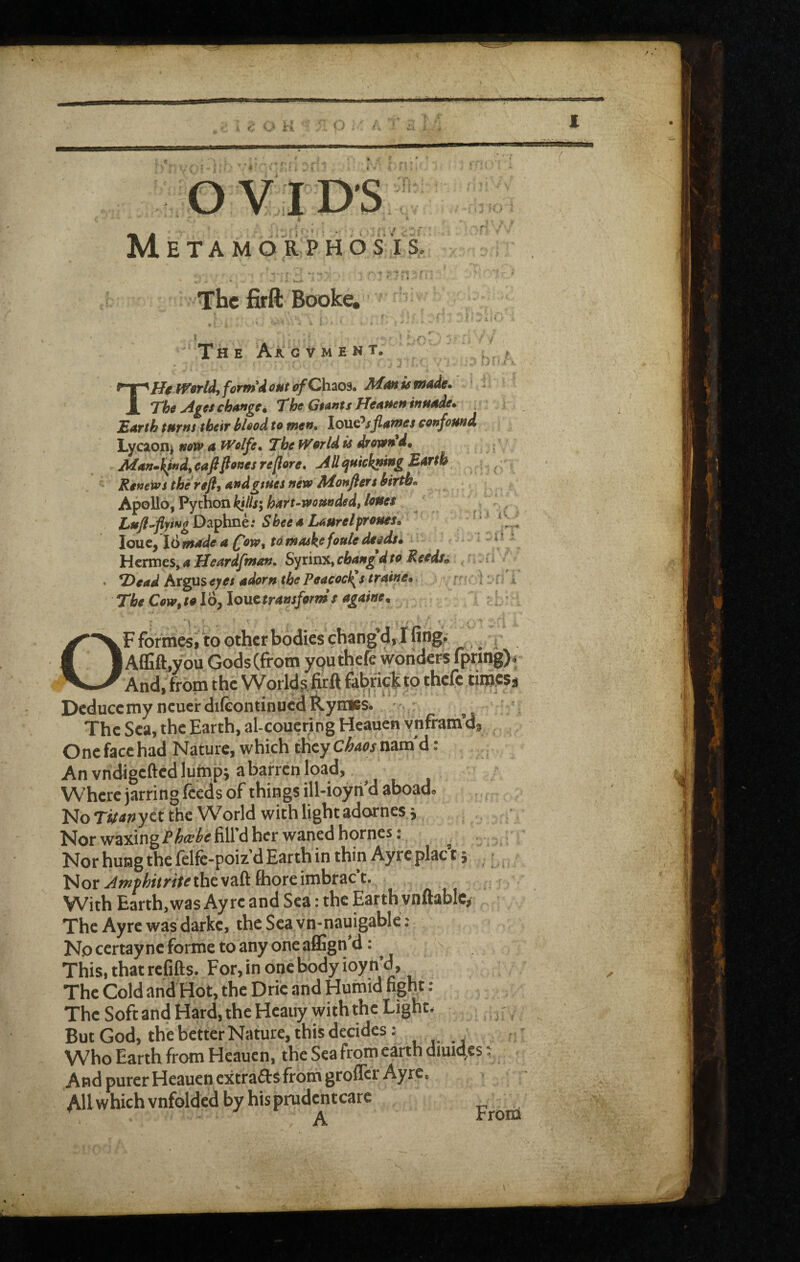 1
OVID'S
METAMORPHOSIS.
The firſt Booke.
THE ARGVMENT.
THe World, form'd out of Chaos. Man is made.
The Ages change. The Giants Heauen inuade.
Earth turns their blood to men. Ioue's flames confound
Lycaon, now a Wolfe. The World is drown'd.
Man-kind, caſt ſtones reſtore. All quickning Earth
Renews the reſt, and giues new Monſters birth.
Apollo, Python kills; hart-wounded, loues
Luſt-flying Daphne: Shee a Laurel proues.
Ioue, Iö made a Cow, to maske foule deeds.
Hermes, a Heardſman. Syrinx, chang'd to Reeds.
Dead Argus eyes adorn the Peacock's traine.
The Cow, to Iö, Ioue transform's againe.
OF formes, to other bodies chang'd, I ſing.
Aſſiſt, you Gods (from you theſe wonders ſpring)
And, from the Worlds firſt fabrick to theſe times,
Deduce my neuer diſcontinued Rymes.
The Sea, the Earth, al-couering Heauen vnfram'd,
One face had Nature, which they Chaos nam'd:
An vndigeſted lump; a barren load,
Where jarring ſeeds of things ill-ioyn'd aboad.
No Titan yet the World with light adornes;
Nor waxing Phœbe fill'd her waned hornes:
Nor hung the ſelfe-poiz'd Earth in thin Ayre plac't;
Nor Amphitrite the vaſt ſhore imbrac't.
With Earth, was Ayre and Sea: the Earth vnſtable,
The Ayre was darke, the Sea vn-nauigable:
No certayne forme to any one aſſign'd:
This, that reſiſts. For, in one body ioyn'd,
The Cold and Hot, the Drie and Humid fight:
The Soft and Hard, the Heauy with the Light.
But God, the better Nature, this decides:
Who Earth from Heauen, the Sea from earth diuides:
And purer Heauen extracts from groſſer Ayre.
All which vnfolded by his prudent care
A From